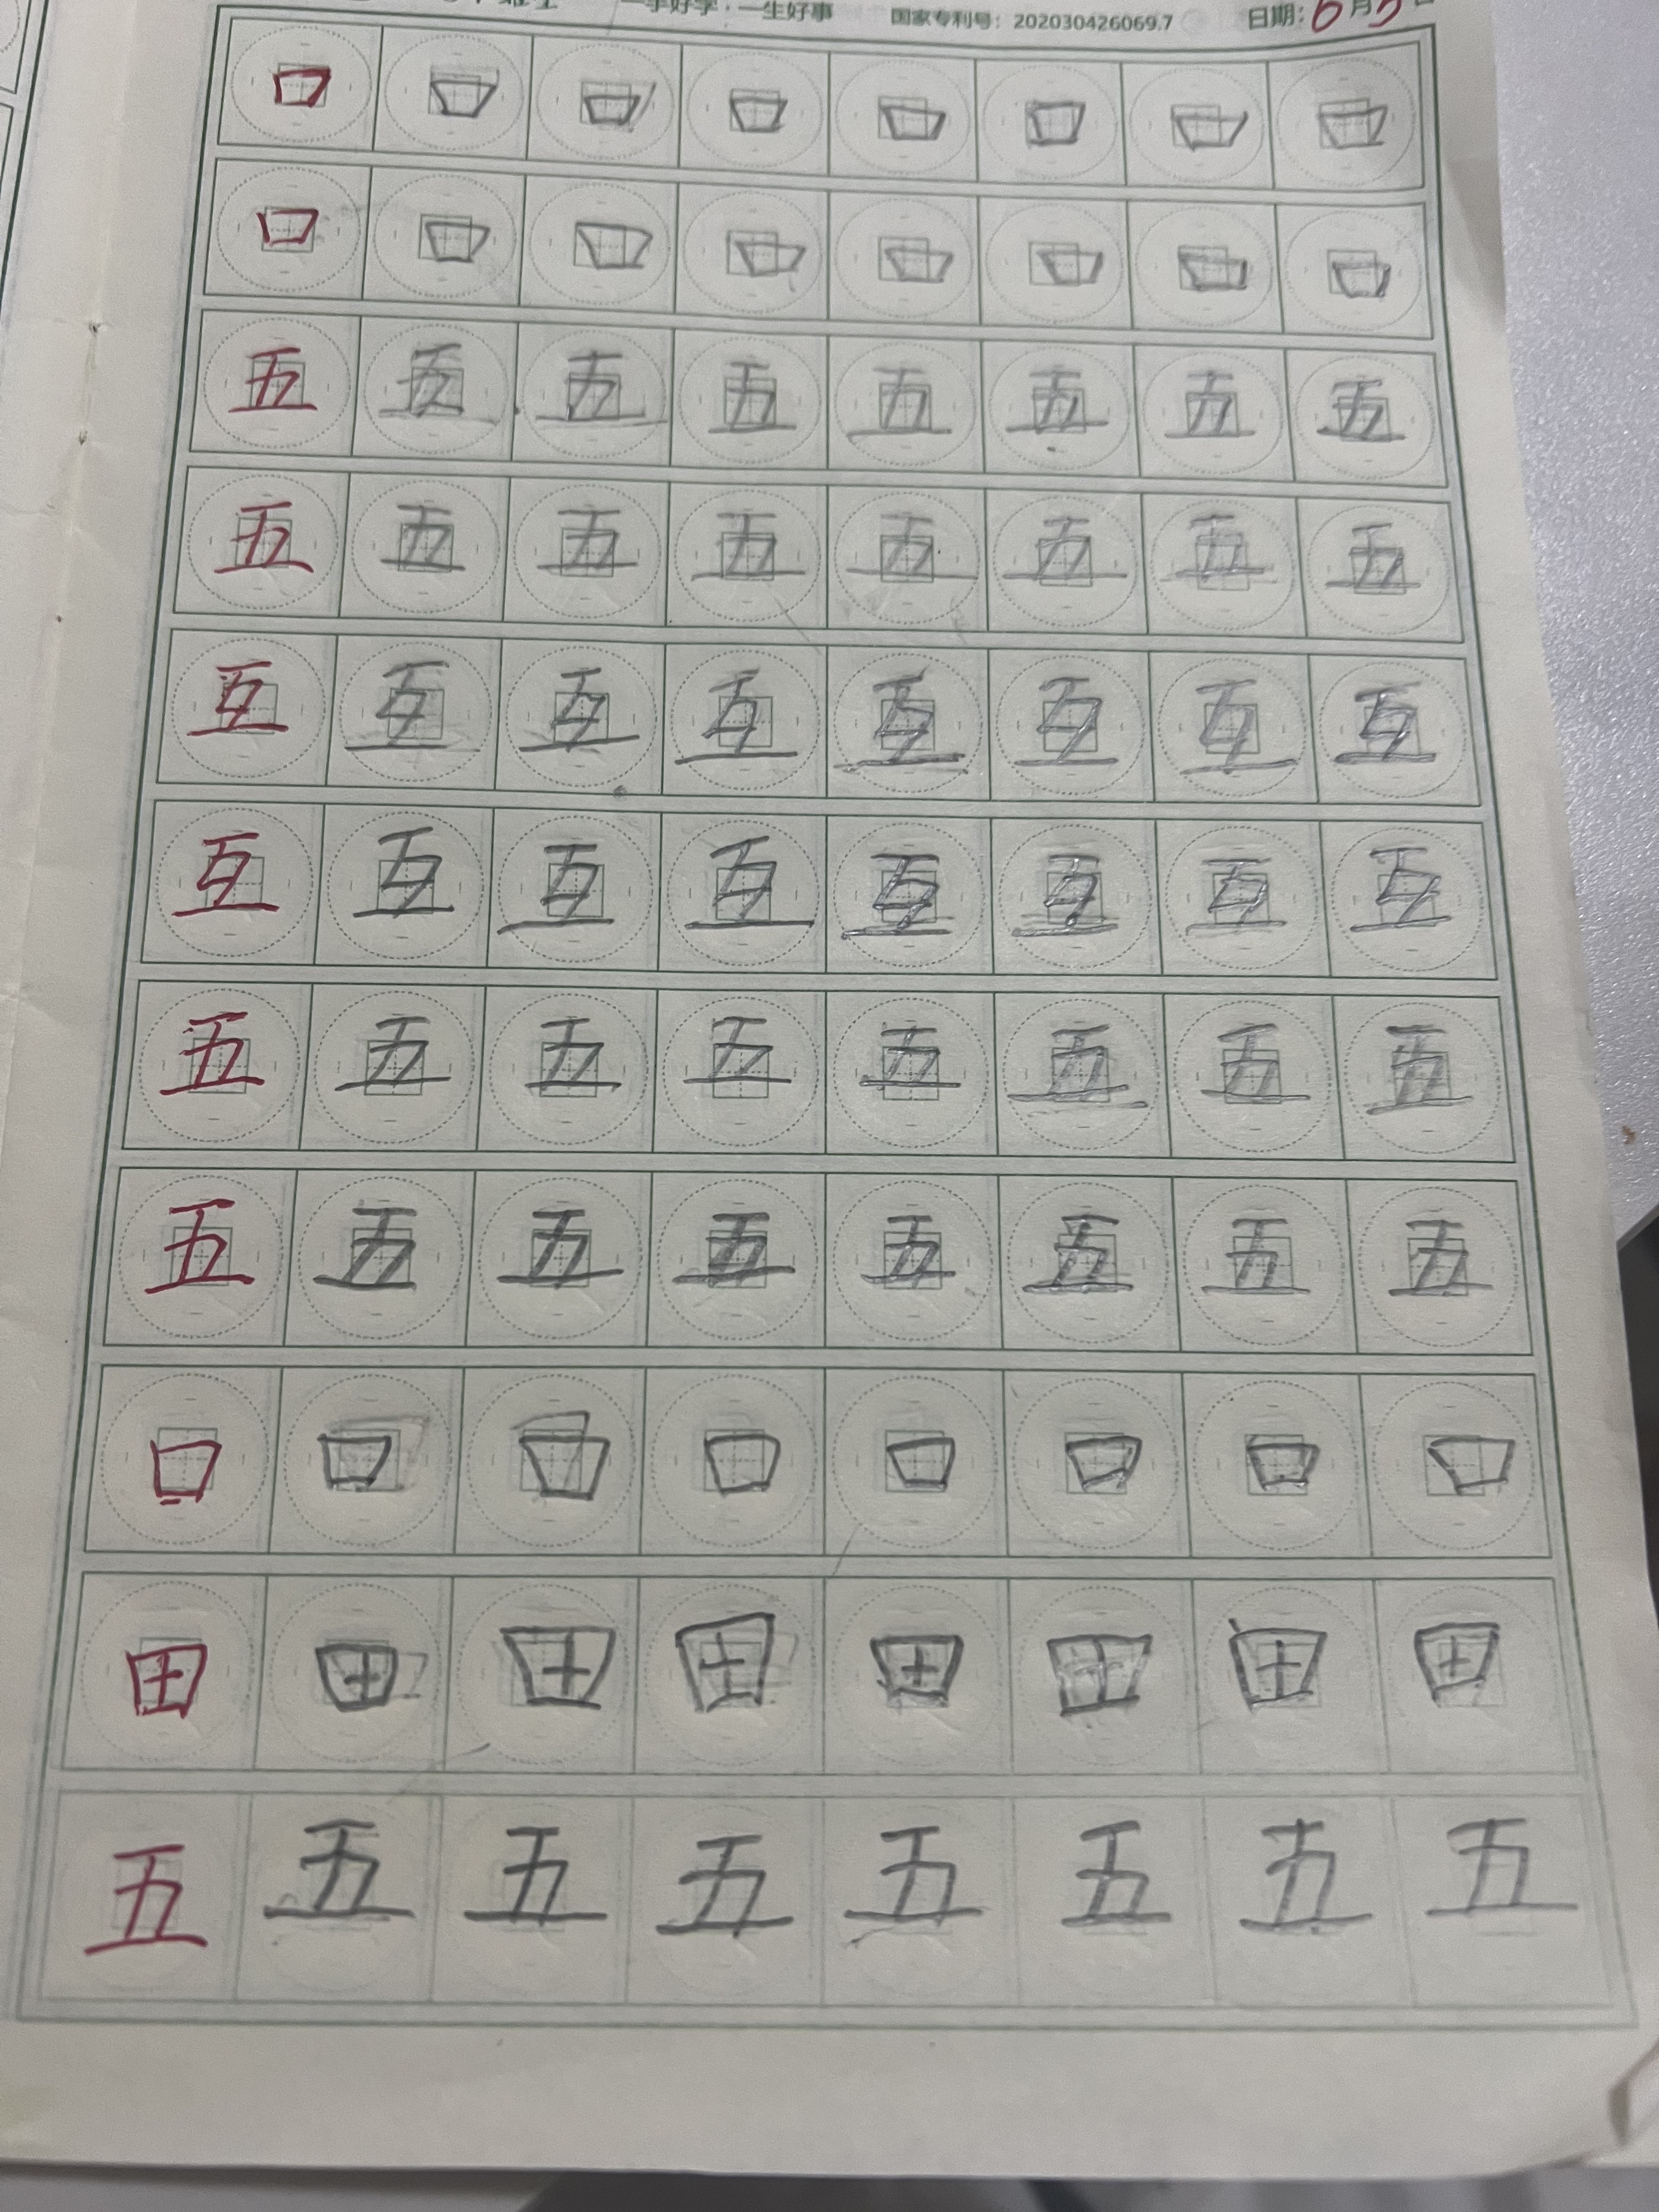 一手好字·一生好事 国家专利号：202030426069.7 日期：6月5日
口 口 口 口 口 口 口 口
口 口 口 口 口 口 口 口
五 五 五 五 五 五 五 五
五 五 五 五 五 五 五 五
互 互 互 互 互 互 互 互
互 互 互 互 互 互 互 互
五 五 五 五 五 五 五 五
五 五 五 五 五 五 五 五
口 口 口 口 口 口 口 口
田 田 田 田 田 田 田 田
五 五 五 五 五 五 五 五